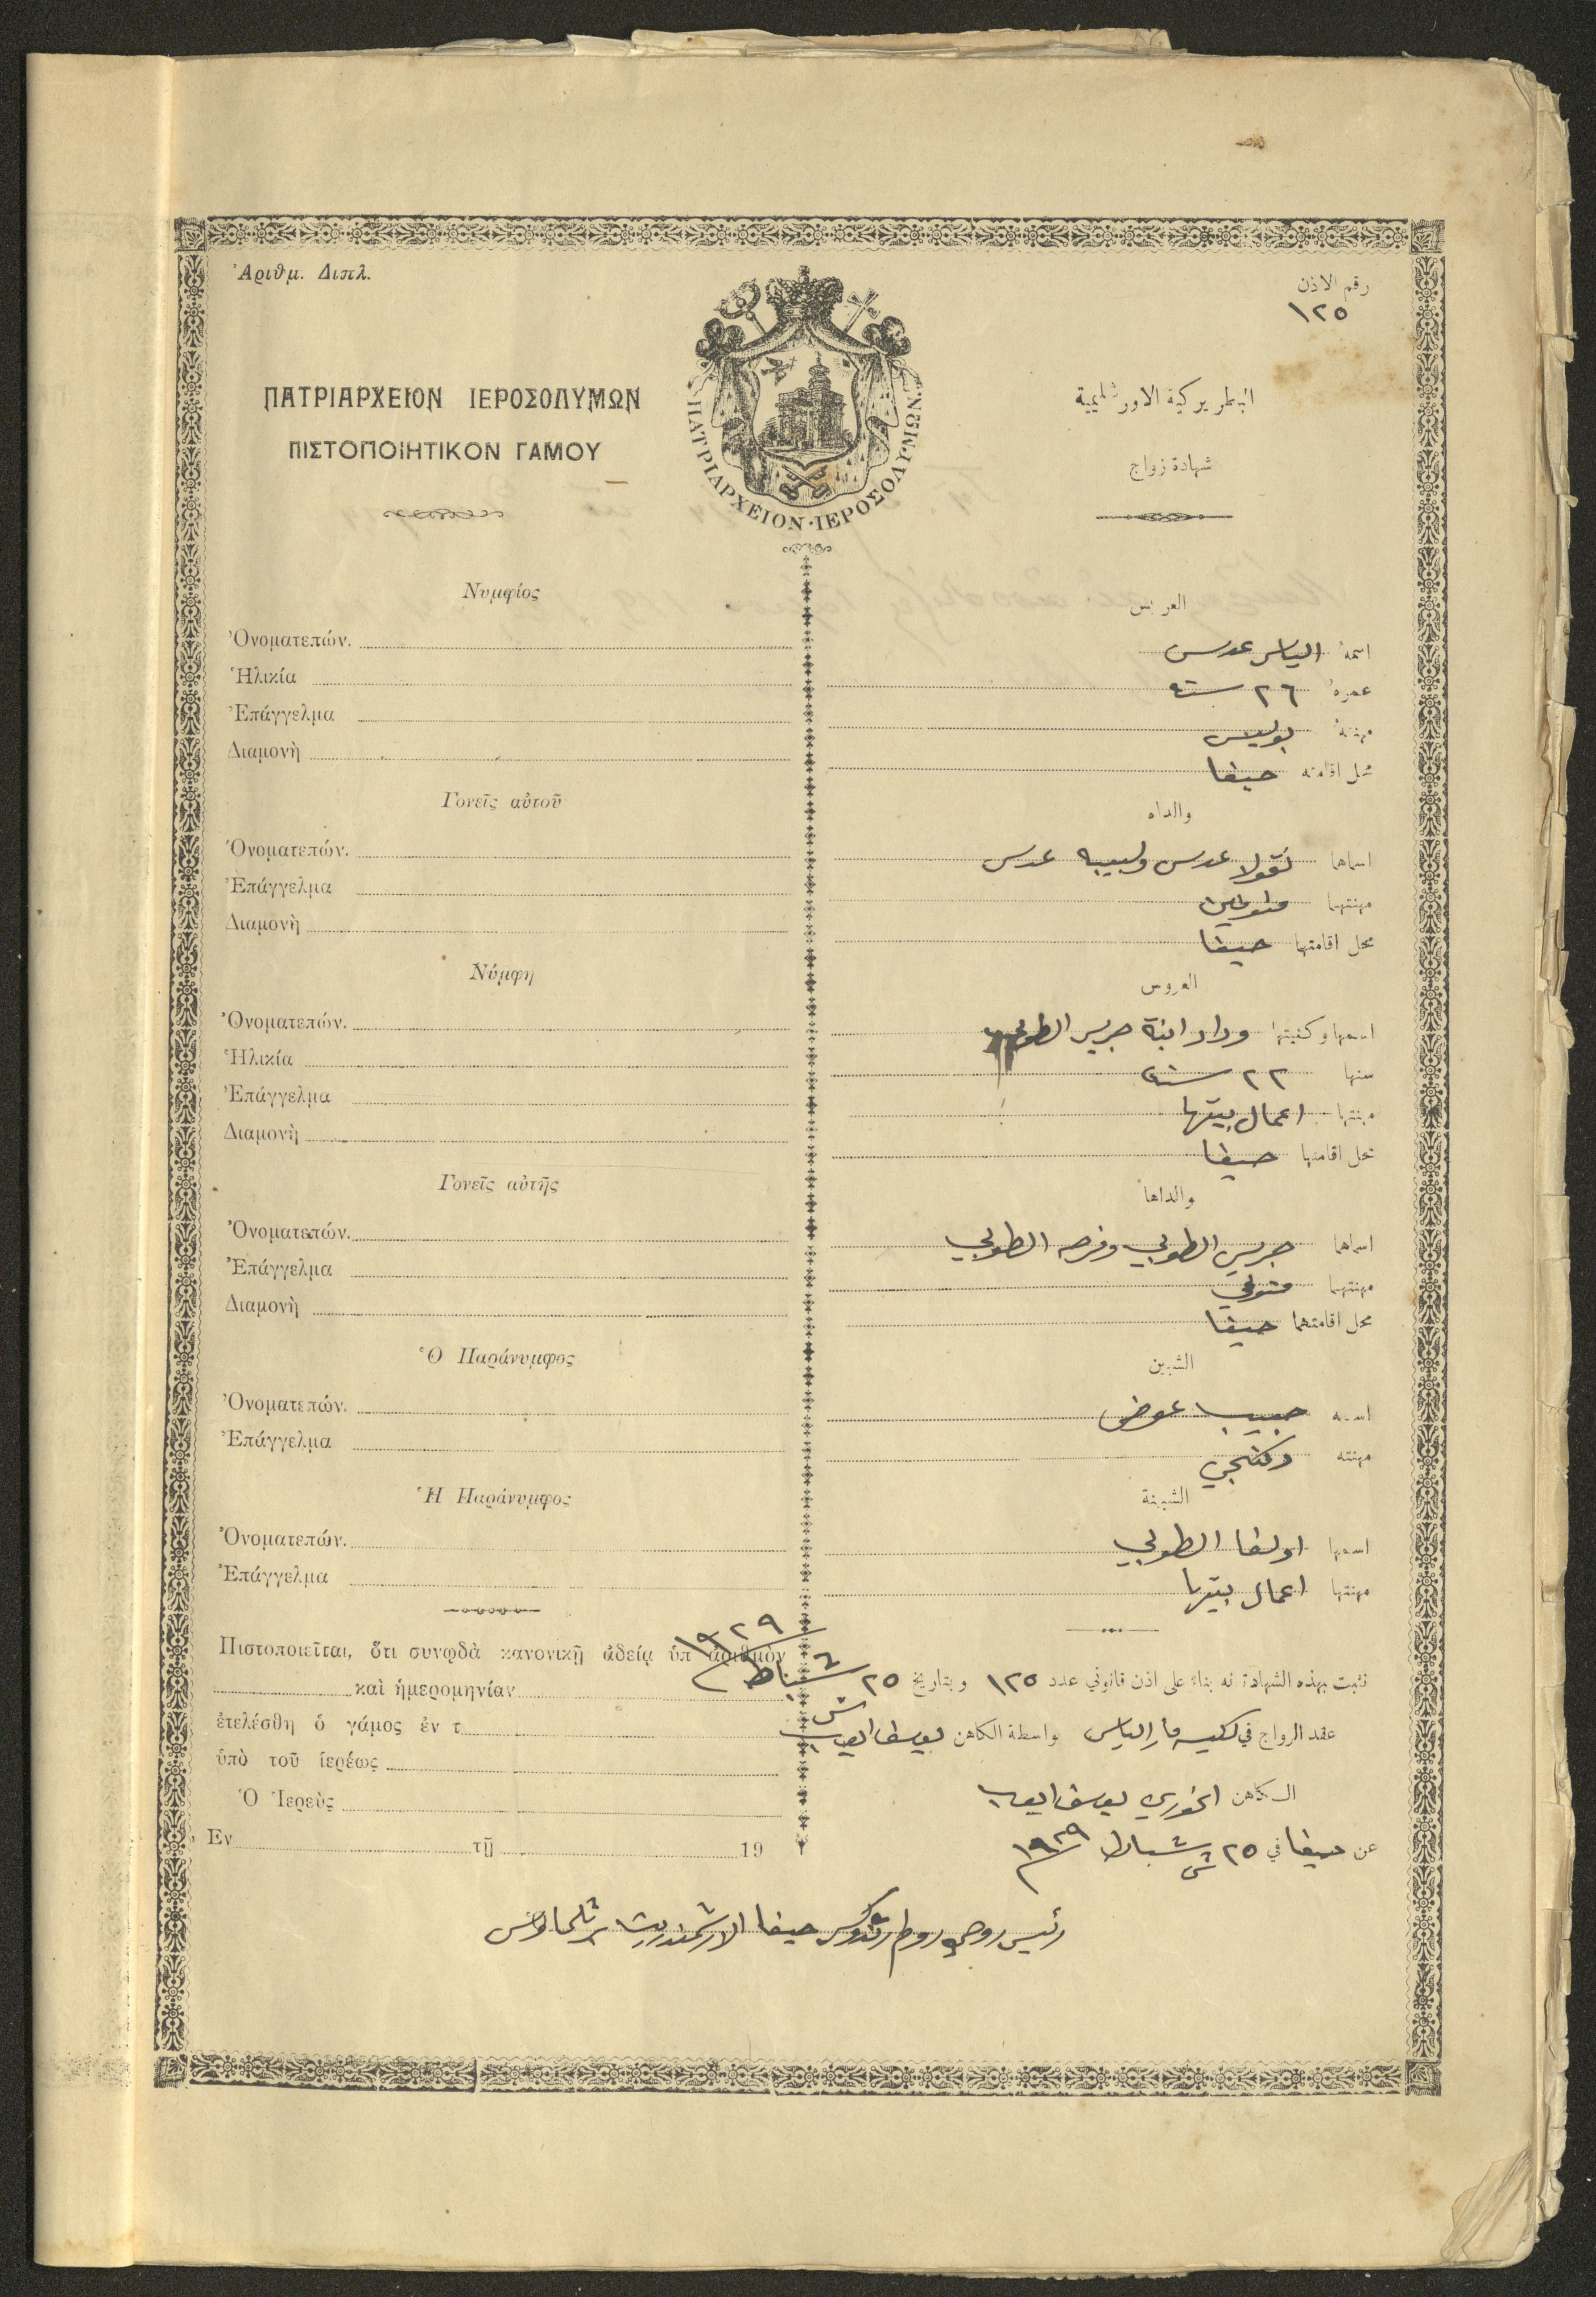 Ἀριθμ. Διπλ.
رقم الاذن
١٢٥
ΠΑΤΡΙΑΡΧΕΙΟΝ ΙΕΡΟΣΟΛΥΜΩΝ
ΠΙΣΤΟΠΟΙΗΤΙΚΟΝ ΓΑΜΟΥ
ΠΑΤΡΙΑΡΧΕΙΟΝ·ΙΕΡΟΣΟΛΥΜΩΝ.
البطريركية الاورشليمية
شهادة زواج
Νυμφίος
Ὀνοματεπών.
Ἡλικία
Ἐπάγγελμα
Διαμονὴ
Γονεῖς αὐτοῦ
Ὀνοματεπών.
Ἐπάγγελμα
Διαμονὴ
Νύμφη
Ὀνοματεπών.
Ἡλικία
Ἐπάγγελμα
Διαμονὴ
Γονεῖς αὐτῆς
Ὀνοματεπών.
Ἐπάγγελμα
Διαμονὴ
Ὁ Παράνυμφος
Ὀνοματεπών.
Ἐπάγγελμα
Ἡ Παράνυμφος
Ὀνοματεπών.
Ἐπάγγελμα
Πιστοποιεῖται, ὅτι συνῳδὰ κανονικῇ ἀδείᾳ ὑπ ἀριθμὸν
καὶ ἡμερομηνίαν
ἐτελέσθη ὁ γάμος ἐν τ
ὑπὸ τοῦ ἱερέως
Ὁ Ἱερεὺς
Ἐν τῇ 19
العريس
اسمهُ الياس عدس
عمرهُ ٢٦ سنة
مهنتهُ بوليس
محل اقامته حيفا
والداه
اسماهما نقولا عدس ولبيبه عدس
مهنتهما
محل اقامتهما حيفا
العروس
اسمها وكنيتها وداد ابنة جريس الطوبي
سنها ٢٢ سنة
مهنتها اعمال بيتها
محل اقامتها حيفا
والداها
اسماهما جريس الطوبي وفرحه الطوبي
مهنتهما
محل اقامتهما حيفا
الشبين
اسمه حبيب عوض
مهنته دكنجي
الشبينة
اسمها اولغا الطوبي
مهنتها اعمال بيتها
نثبت بهذه الشهادة انه بناءً على اذن قانوني عدد ١٢٥ وبتاريخ ٢٥ شباط ١٩٢٩
عقد الزواج في كنيسة مار الياس بواسطة الكاهن يوسف ايوب
الكاهن الخوري يوسف ايوب
عن حيفا في ٢٥ شباط ١٩٢٩
رئيس روحي روم ارثوذكس حيفا الارشمندريت